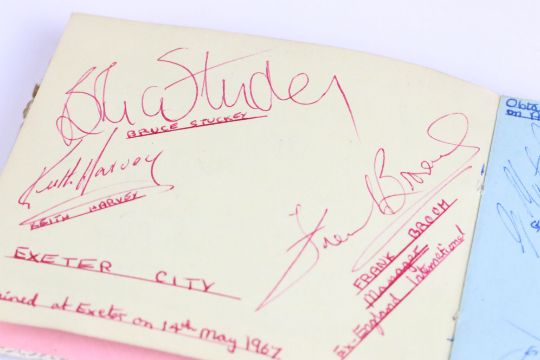 Bruce Stuckey
BRUCE STUCKEY
Keith Harvey
KEITH HARVEY
Frank Broome
FRANK BROOM
Manager
Ex-England International
EXETER CITY
ained at Exeter on 14th May 1967
Obta
on